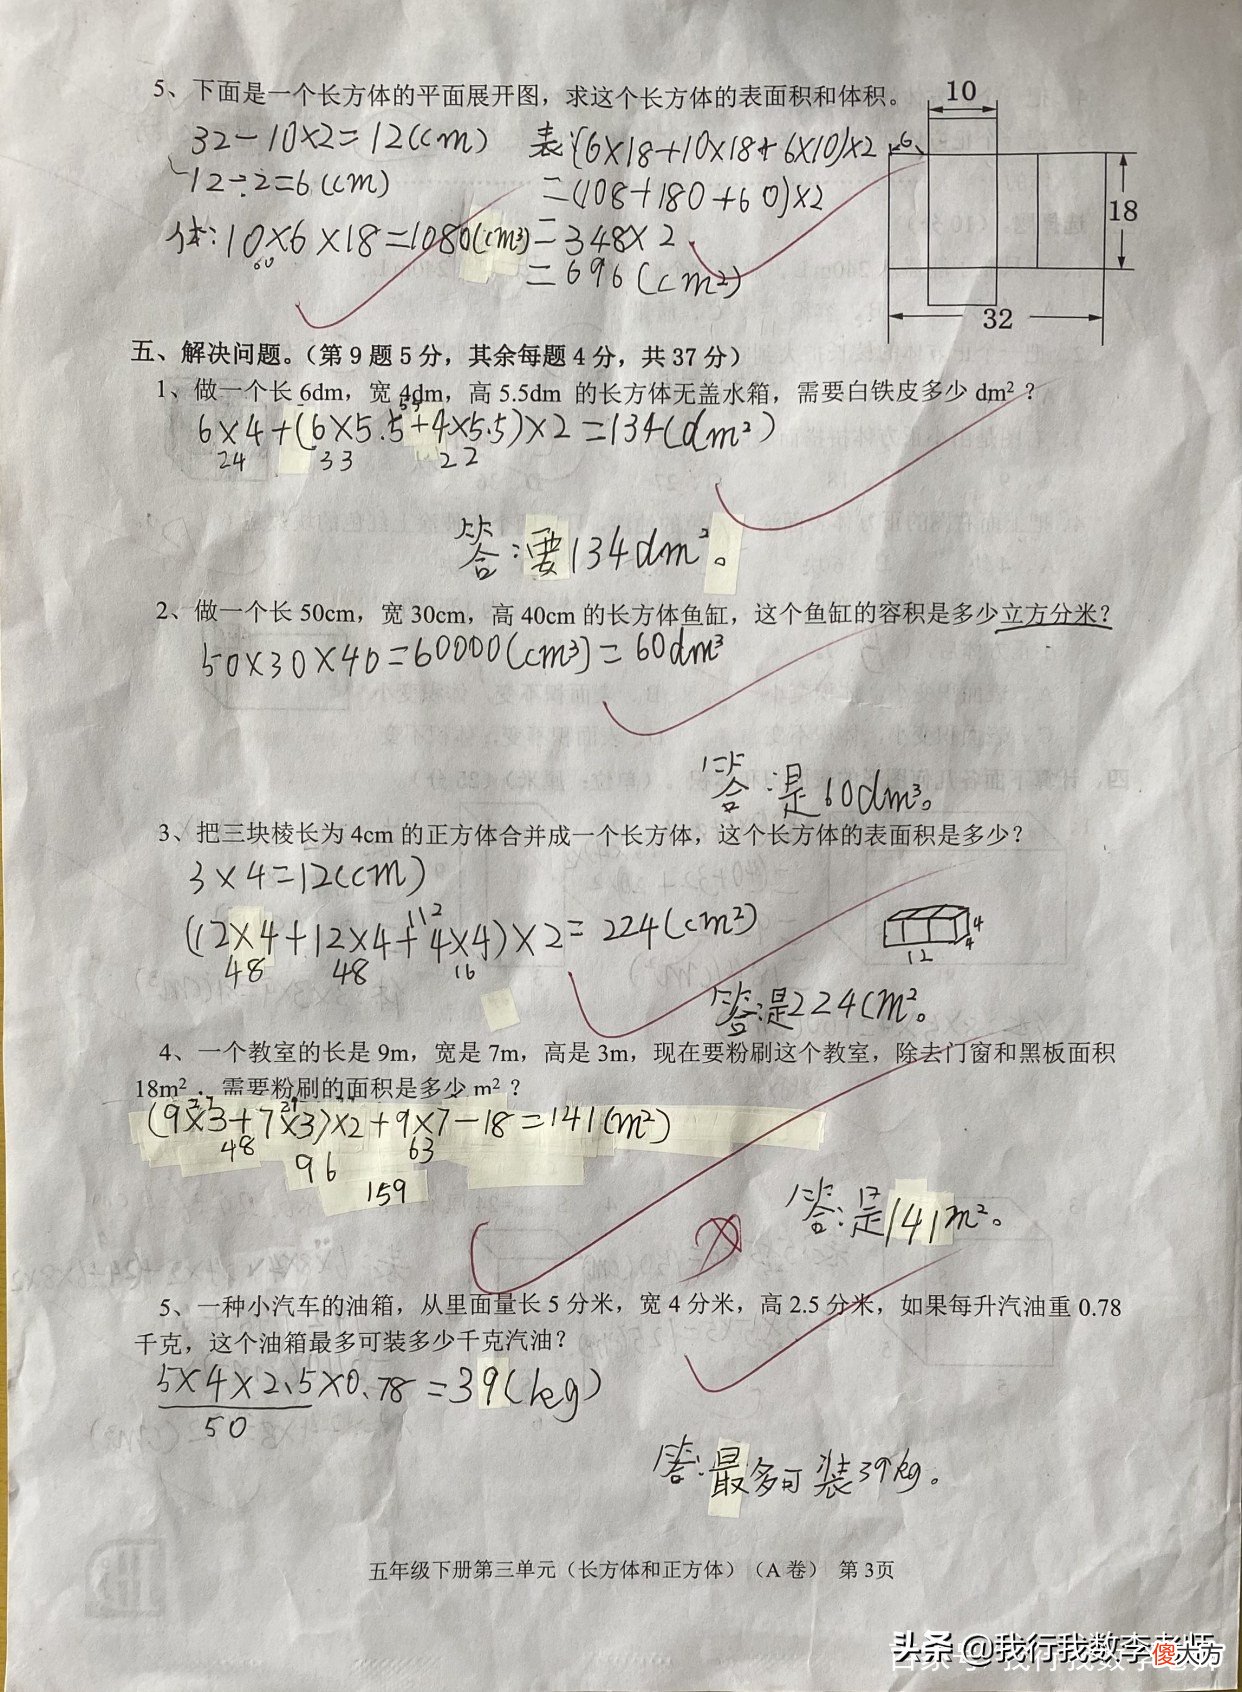 5、下面是一个长方体的平面展开图，求这个长方体的表面积和体积。
10
32-10×2=12(cm)
表:(6×18+10×18+6×10)×2
6
12÷2=6(cm)
=(108+180+60)×2
18
体:10×6×18=1080(cm³)
60
=348×2
=696(cm²)
32
五、解决问题。（第9题5分，其余每题4分，共37分）
1、做一个长6dm，宽4dm，高5.5dm 的长方体无盖水箱，需要白铁皮多少dm²？
55
6×4+(6×5.5+4×5.5)×2=134(dm²)
24 33 22
答:要134dm²。
2、做一个长50cm，宽30cm，高40cm的长方体鱼缸，这个鱼缸的容积是多少立方分米？
50×30×40=60000(cm³)=60dm³
答:是60dm³。
3、把三块棱长为4cm的正方体合并成一个长方体，这个长方体的表面积是多少？
3×4=12(cm)
112
(12×4+12×4+4×4)×2=224(cm²)
48 48 16
4
4
12
答:是224cm²。
4、一个教室的长是9m，宽是7m，高是3m，现在要粉刷这个教室，除去门窗和黑板面积
18m²，需要粉刷的面积是多少m²？
27 21
(9×3+7×3)×2+9×7-18=141(m²)
48 63
96
159
答:是141m²。
5、一种小汽车的油箱，从里面量长5分米，宽4分米，高2.5分米，如果每升汽油重0.78
千克，这个油箱最多可装多少千克汽油？
5×4×2.5×0.78=39(kg)
50
答:最多可装39kg。
五年级下册第三单元（长方体和正方体）（A卷） 第3页
头条 @我行我数李老师
傻大方